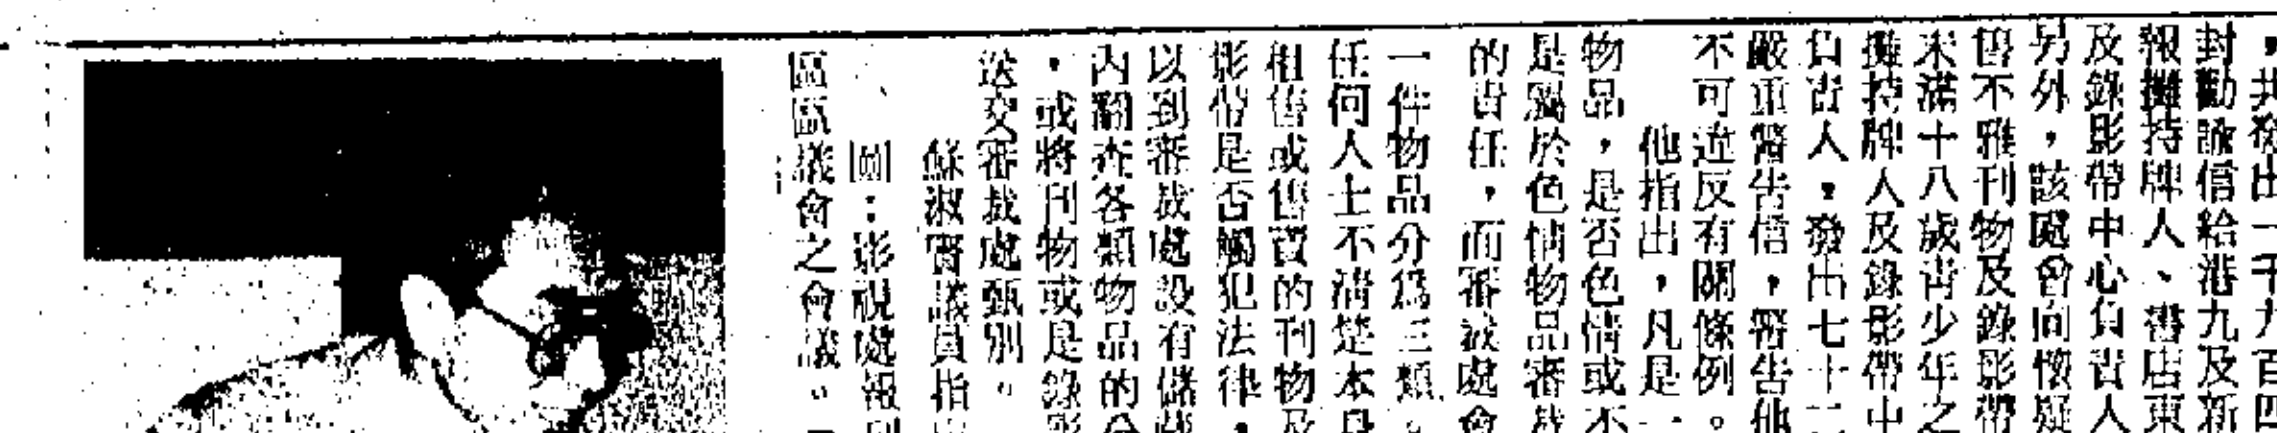 ，共發出一千九百四
封勸諭信給港九及新
報攤持牌人、書店東
及錄影帶中心負責人
另外，該處會向懷疑
售不雅刊物及錄影帶
未滿十八歲青少年之
攤持牌人及錄影帶中
負責人，發出七十二
嚴重警告信，警告他
不可違反有關條例。
他指出，凡是一
物品，是否色情或不
是屬於色情物品審裁
的責任，而審裁處會
一件物品分為三類。
任何人士不清楚本身
租售或售賣的刊物及
影帶是否觸犯法律，
以到審裁處設有儲藏
內翻查各類物品的分
，或將刊物或是錄影
送交審裁處甄別。
蘇淑賢議員指
圖：影視處報
區區議會之會議。